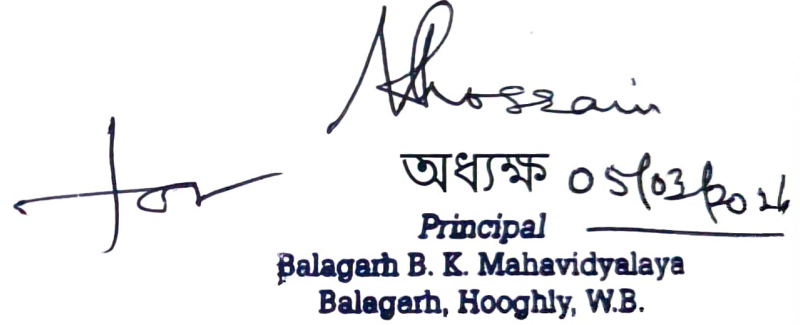 AHossain
অধ্যক্ষ 05/03/2026
for Principal
Balagarh B. K. Mahavidyalaya
Balagarh, Hooghly, W.B.